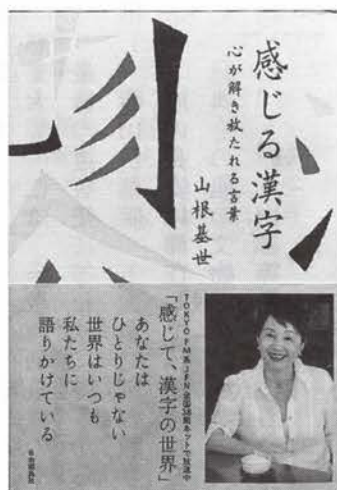 感じる漢字
心が解き放たれる言葉
山根基世
TOKYO FM系JFN全国38局ネットで放送中
「感じて、漢字の世界」
あなたは
ひとりじゃない
世界はいつも
私たちに
語りかけている